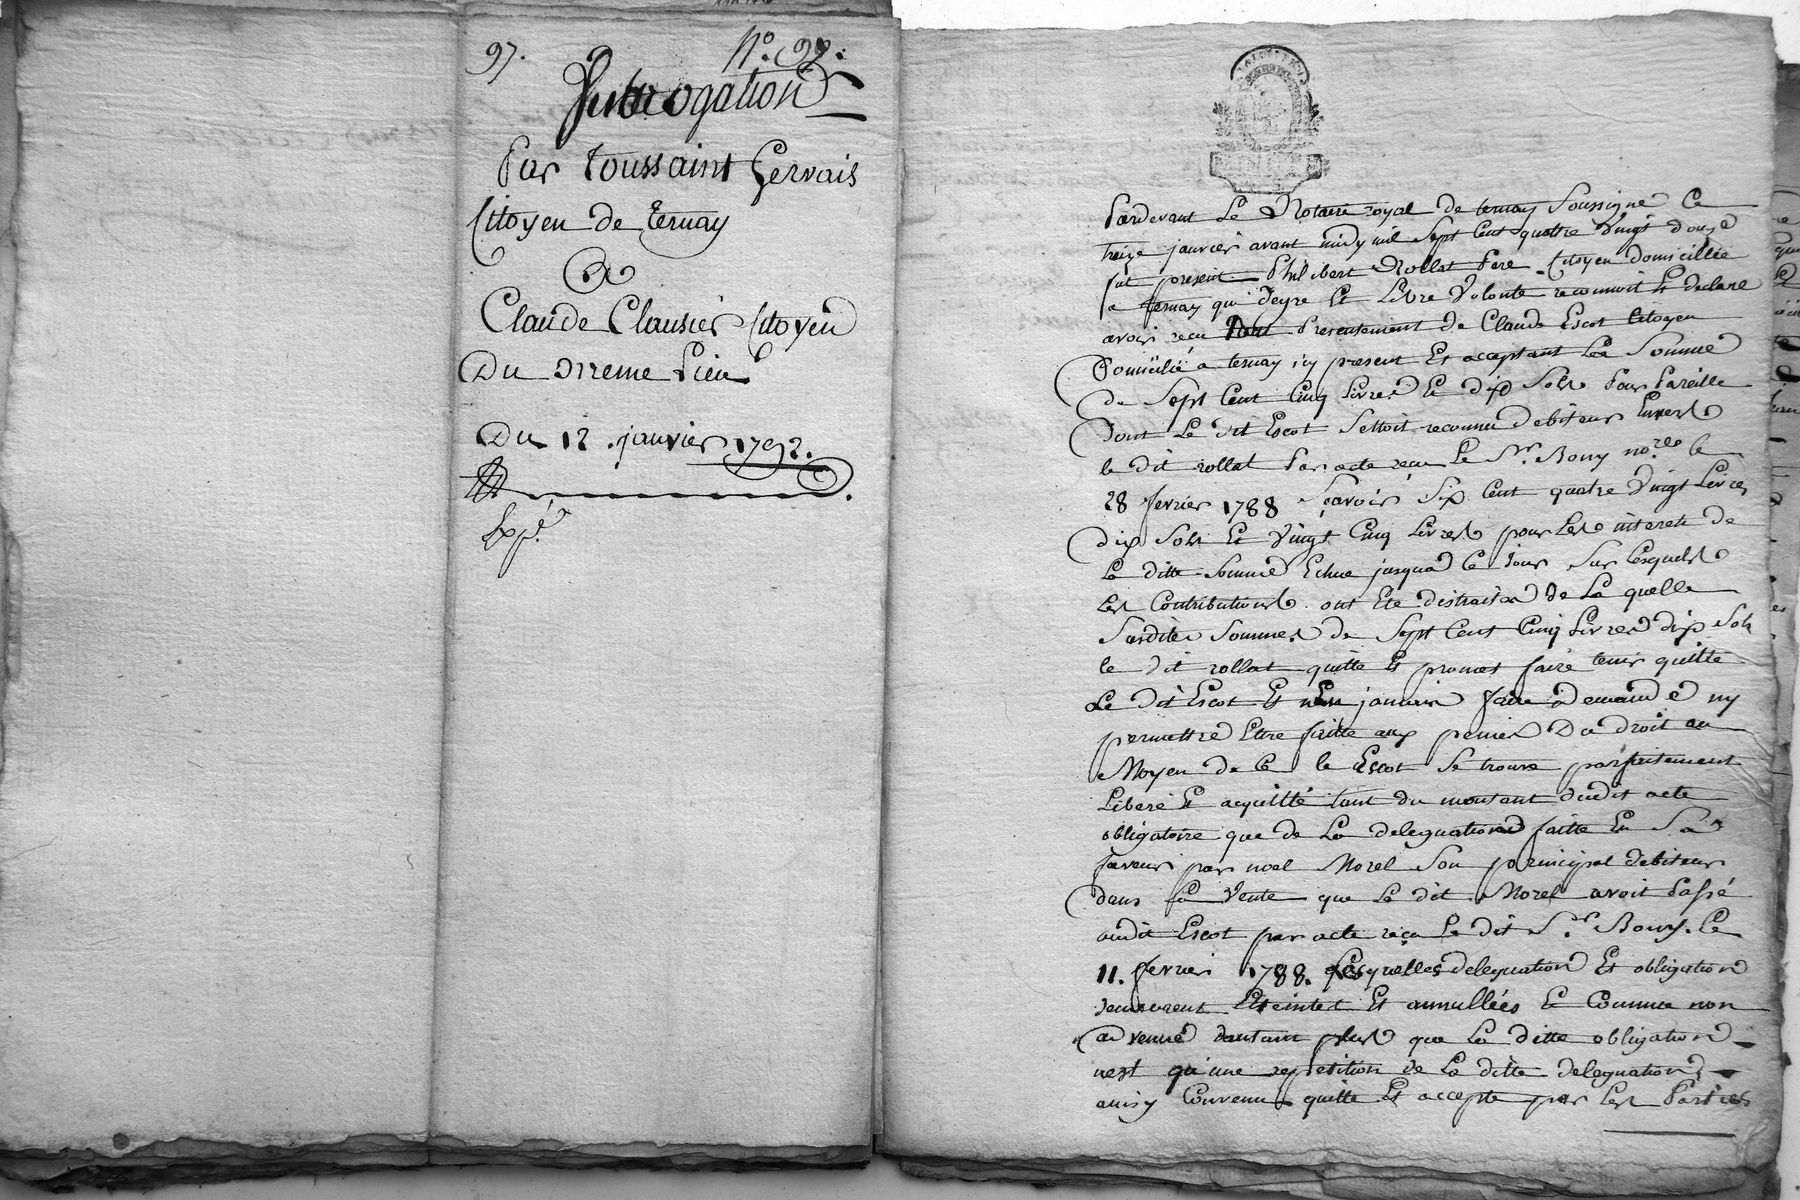 97.
N.o 97.
Subrogation
Par toussaint Gervais
Citoyen de ternay
A
Claude Clausier Citoyen
Du meme Lieu
Du 12. janvier 1792.
Exp.é
Pardevant Le Notaire royal de ternay Soussigné Ce
treize janvier avant midy mil Sept Cent quattre Vingt douze
fut present Philibert Rollat Pere Citoyen domicillié
a ternay qui de gre Et Libre Volonte reconnoit Et declare
avoir recu Presentement de Claude Escot Citoyen
Domicilié a ternay icy present Et acceptant La Somme
de Sept Cent Cinq Livres Et dix Sols Pour Pareille
dont Le dit Escot Settoit reconnu debiteur Envers
le dit rollat Par acte recu Le Sr. Bony nore. le
28 fevrier 1788 Scavoir Six Cent quatre Vingt Livres
dix Sols Et Vingt Cinq Livres pour Les interets de
La ditte Somme Echue jusqua Ce jour Sur Lesquels
Les Contributions ont Ete distraites de La quelle
Susdite Somme de Sept Cent Cinq Livres dix Sols
le dit rollat quitte Et promet faire tenir quitte
Le dit Escot Et nen jamais faire demande ny
permettre Etre faitte aux peines Du droit au
Moyen de Ce le Escot Se trouve parfaitement
Liberé Et acquitté tant du montant dudit acte
obligatoire que de La deleguation faitte En Sa
faveur par noel Morel Son principal debiteur
dans La Vente que Le dit Morel avoit Passé
audit Escot par acte recu Le dit Sr. Bony. Le
11. fevrier 1788. Lesquelles deleguation Et obligation
demeurent Eteintes Et annullées Et Comme non
advenue dautant plus que La ditte obligation
nest qu'une repetition de La ditte deleguation
ainsy Convenu quitte Et accepte par Les Parties